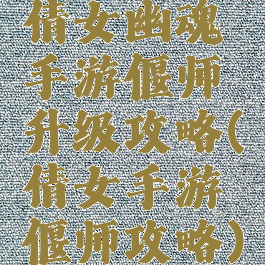 倩女幽魂
手游偃师
升级攻略(
倩女手游
偃师攻略)